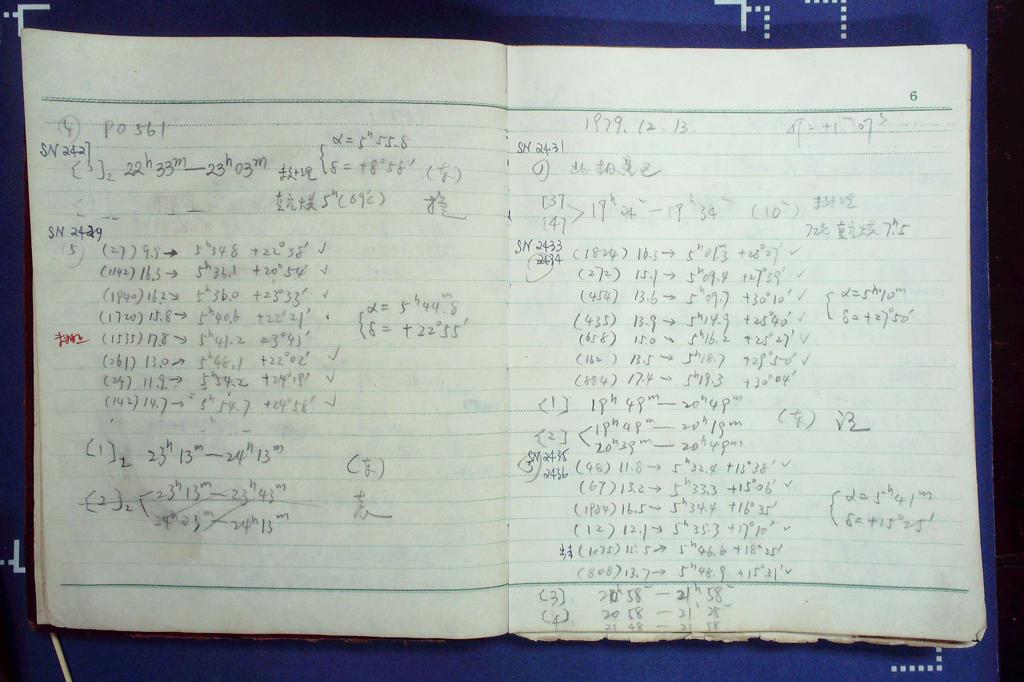 ④ PO 561
SN 2427
α = 5ʰ 55.8
[3]₂ 22ʰ33ᵐ — 23ʰ03ᵐ
δ = +8°58′
(东)
5ʰ (69℃)
SN 2429
(5) (27) 9.5 → 5ʰ34.8 +22°58′ ✓
(1142) 16.3 → 5ʰ36.1 +20°54′ ✓
(1940) 16.2 → 5ʰ36.0 +23°33′ ✓
α = 5ʰ44ᵐ.8
(1720) 15.8 → 5ʰ40.6 +22°21′ ✓
δ = +22°55′
(1535) 17.8 → 5ʰ41.2 +23°43′
(261) 13.0 → 5ʰ48.1 +22°02′ ✓
(24) 11.9 → 5ʰ54.2 +24°19′ ✓
(142) 14.7 → 5ʰ54.7 +24°58′ ✓
[1]₂ 23ʰ13ᵐ — 24ʰ13ᵐ
(东)
[2]₂ 23ʰ13ᵐ — 23ʰ43ᵐ
24ʰ03ᵐ — 24ʰ13ᵐ
6
1979. 12. 13.
SN 2431
① 北极星区
[3]
[4] 19ʰ24ᵐ — 19ʰ34ᵐ (10ᵐ)
SN 2433
2434
(1824) 16.3 → 5ʰ07.3 +28°27′ ✓
(272) 15.1 → 5ʰ09.4 +27°39′ ✓
(454) 13.6 → 5ʰ09.7 +30°10′ ✓
α = 5ʰ10ᵐ
(435) 13.9 → 5ʰ14.9 +28°40′ ✓
δ = +27°50′
(658) 15.0 → 5ʰ16.2 +25°27′ ✓
(162) 13.5 → 5ʰ18.7 +29°50′ ✓
(884) 17.4 → 5ʰ19.3 +30°04′
[1] 19ʰ49ᵐ — 20ʰ49ᵐ
(东)
[2] 19ʰ49ᵐ — 20ʰ19ᵐ
20ʰ39ᵐ — 20ʰ49ᵐ
SN 2435
2436
③ (48) 11.8 → 5ʰ32.4 +13°38′ ✓
(67) 13.2 → 5ʰ33.3 +15°06′ ✓
α = 5ʰ41ᵐ
(1984) 16.5 → 5ʰ34.4 +16°35′
δ = +15°25′
(12) 12.1 → 5ʰ35.3 +17°10′ ✓
(1075) 15.5 → 5ʰ46.6 +18°25′
(808) 13.7 → 5ʰ48.9 +15°31′ ✓
[3] 20ʰ58ᵐ — 21ʰ58ᵐ
[4] 20 58 — 21 28
21 48 — 21 58